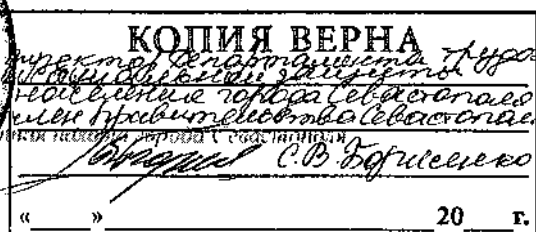 КОПИЯ ВЕРНА
директор Департамента труда
и социальной защиты
населения города Севастополя
член Правительства Севастополя
города Севастополя
С.В. Борисенко
« » 20 г.